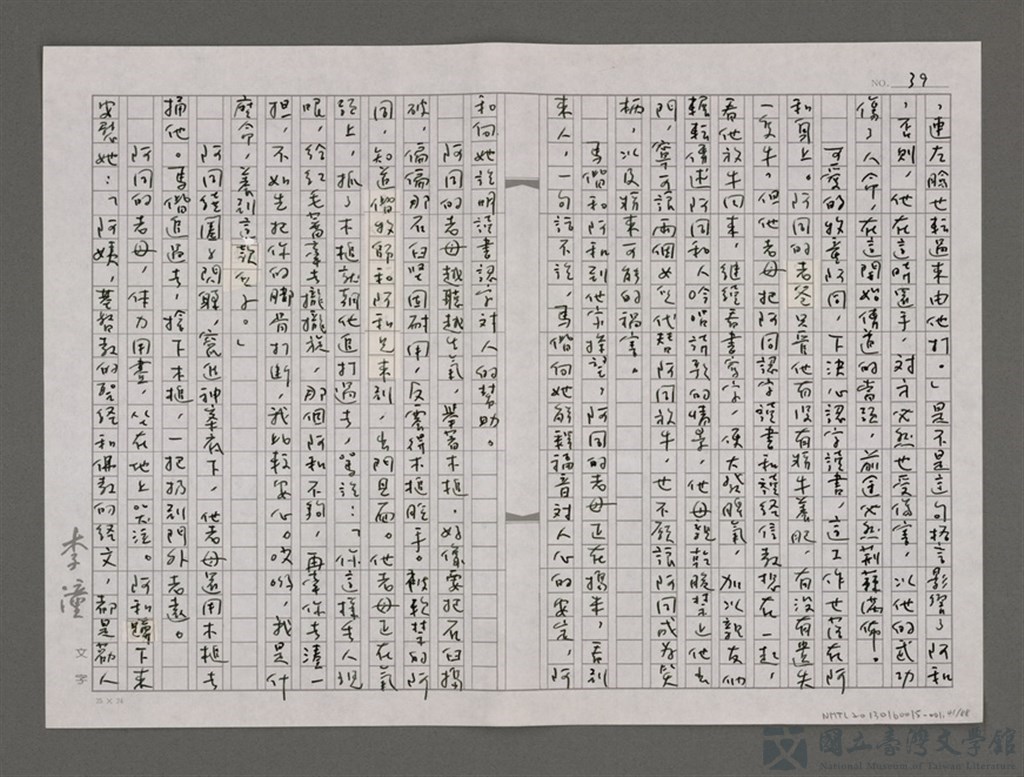 NO. 39
，連左臉也轉過來由他打。」是不是這句格言影響了阿和
，否則，他在這時還手，對方必然也受傷害，以他的武功
傷了人命，在這開始傳道的當頭，前途必然荊棘滿佈。
可愛的牧童阿同，下決心認字讀書，這工作也落在阿
和身上。阿同的老爸只管他有沒有將牛養肥，有沒有遺失
一隻牛。但他老母把阿同認字讀書和讀經信教想在一起，
看他放牛回來，繼續看書寫字，便大發脾氣，加以親友們
輾轉傳述阿同和人吟唱詩歌的情景，他母親乾脆禁止他出
門，寧可讓兩個女兒代替阿同放牛，也不願讓阿同成為笑
柄，以及將來可能的禍害。
馬偕和阿和到他家探望，阿同的老母正在搗米，看到
來人，一句話不說，馬偕向她解釋福音對人心的安定，阿
和向她說明讀書認字對人的幫助。
阿同的老母越聽越生氣，舉著木槌，好像要把石臼搗
破，偏偏那石臼堅固耐用，反震得木槌脫手。被軟禁的阿
同，知道偕牧師和阿和兄來到，出門見面。他老母正在氣
頭上，抓了木槌就朝他追打過去，罵說：「你這樣失人現
眼，給紅毛蕃牽去攏攏旋，那個阿和不夠，再牽你去湊一
担，不如先把你的腳骨打斷，我比較安心。哎喲，我是什
麼命，養到這款囝子。」
阿同繞圈子閃躲，竄進神桌底下，他老母還用木槌去
捅他。馬偕追過去，搶下木槌，一把扔到門外老遠。
阿同的老母，体力用盡，坐在地上哭泣。阿和蹲下來
安慰她：「阿姨，基督教的聖經和佛教的經文，都是勸人
李潼
文字
25 × 24
NMTL20130160015-001.41/88
國立臺灣文學館
National Museum of Taiwan Literature